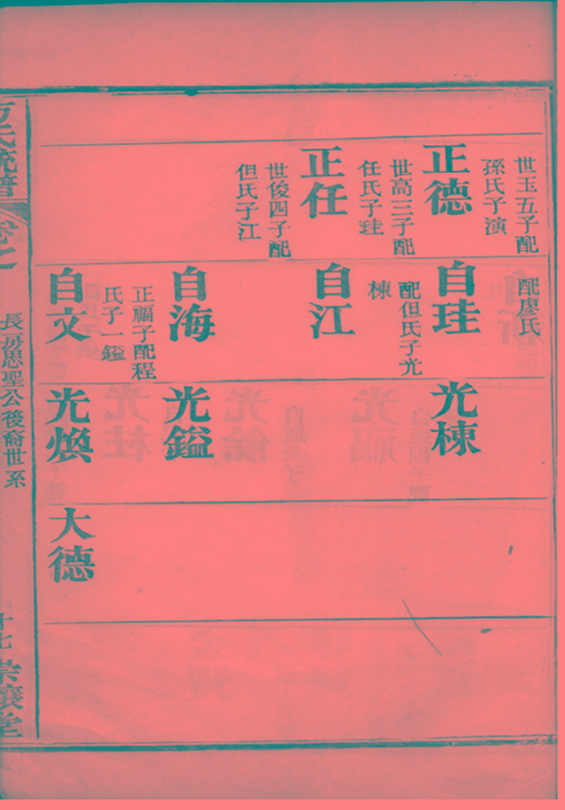 世玉五子配
孫氏子演
正德
世高三子配
任氏子珪
正任
世俊四子配
但氏子江
配廖氏
自珪
配但氏子光
棟
自江
自海
正福子配程
氏子一鎰
自文
光棟
光鎰
光煥
大德
長房思聖公後裔世系
十七